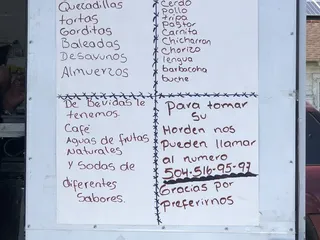 Quecadillas
tortas
Gorditas
Baleadas
Desayunos
Almuerzos
Cerdo
pollo
tripa
Pastor
Carnita
Chicharron
Chorizo
lengua
barbacoha
buche
De Bevidas le
tenemos.
Café
Aguas de frutas
Naturales
y Sodas de
diferentes
Sabores.
Para tomar
Su
Horden nos
Pueden llamar
al numero
504-516-95-97
Gracias por
preferirnos